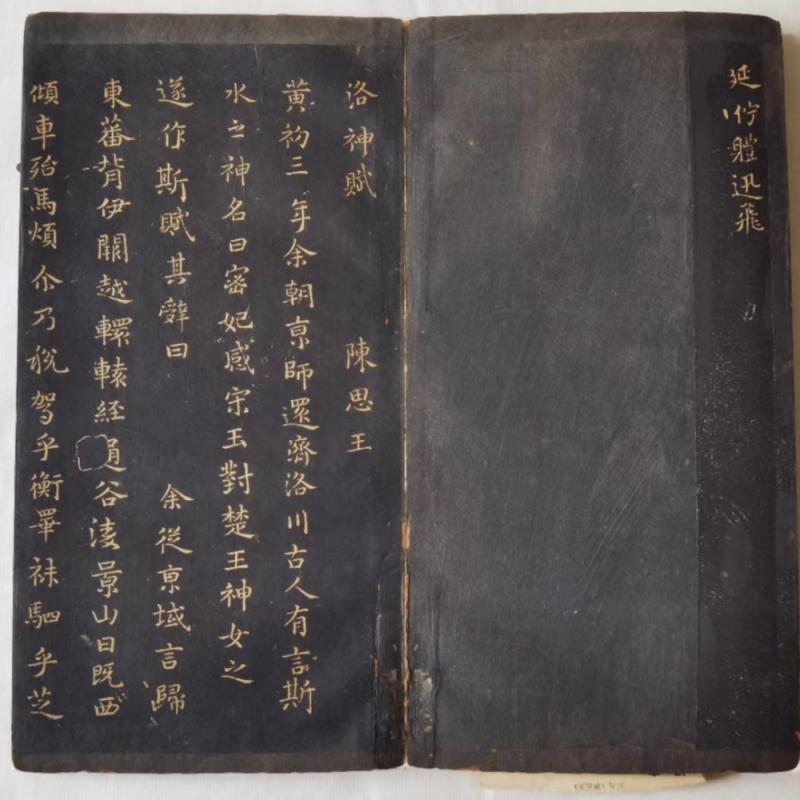 延佇軆迅飛
洛神賦 陳思王
黃初三年余朝亰師還濟洛川古人有言斯
水之神名曰宻妃感宋玉對楚王神女之
遂作斯賦其辭曰 余從亰域言歸
東蕃背伊闕越轘轅經通谷淩景山日既西
傾車殆馬煩尒乃稅駕乎衡睪秣駟乎芝